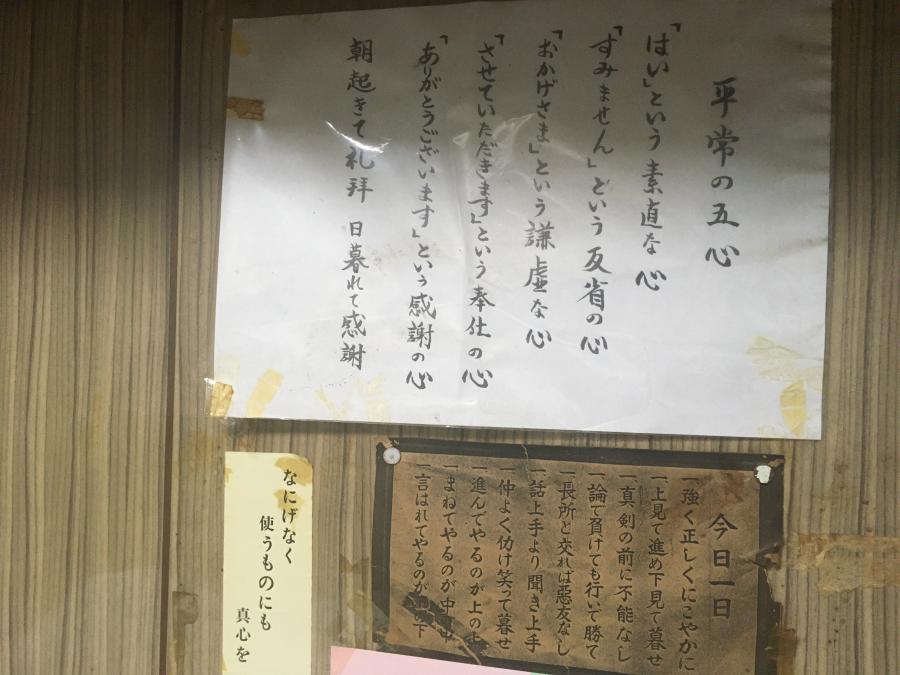 平常の五心
「はい」という素直な心
「すみません」という反省の心
「おかげさま」という謙虚な心
「させていただきます」という奉仕の心
「ありがとうございます」という感謝の心
朝起きて礼拝 日暮れて感謝
今日一日
一、強く正しくにこやかに
一、上見て進め下見て暮せ
一、真剣の前に不能なし
一、論で負けても行いで勝て
一、長所と交れば悪友なし
一、話上手より聞き上手
一、仲よく仂け笑って暮せ
一、進んでやるのが上の上
一、まねてやるのが中の中
一、言はれてやるのが下の下
なにげなく
使うものにも
真心を